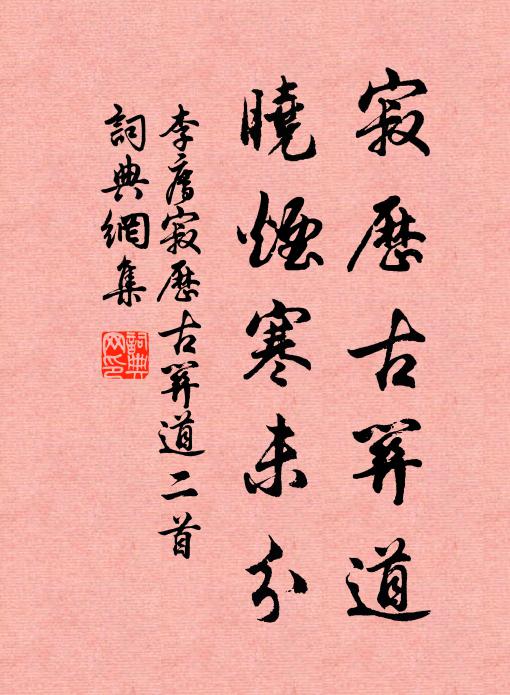 寂歷古關道
曉煙寒未分
李廌寂歷古關道二首
詞典網集
詞典
网印